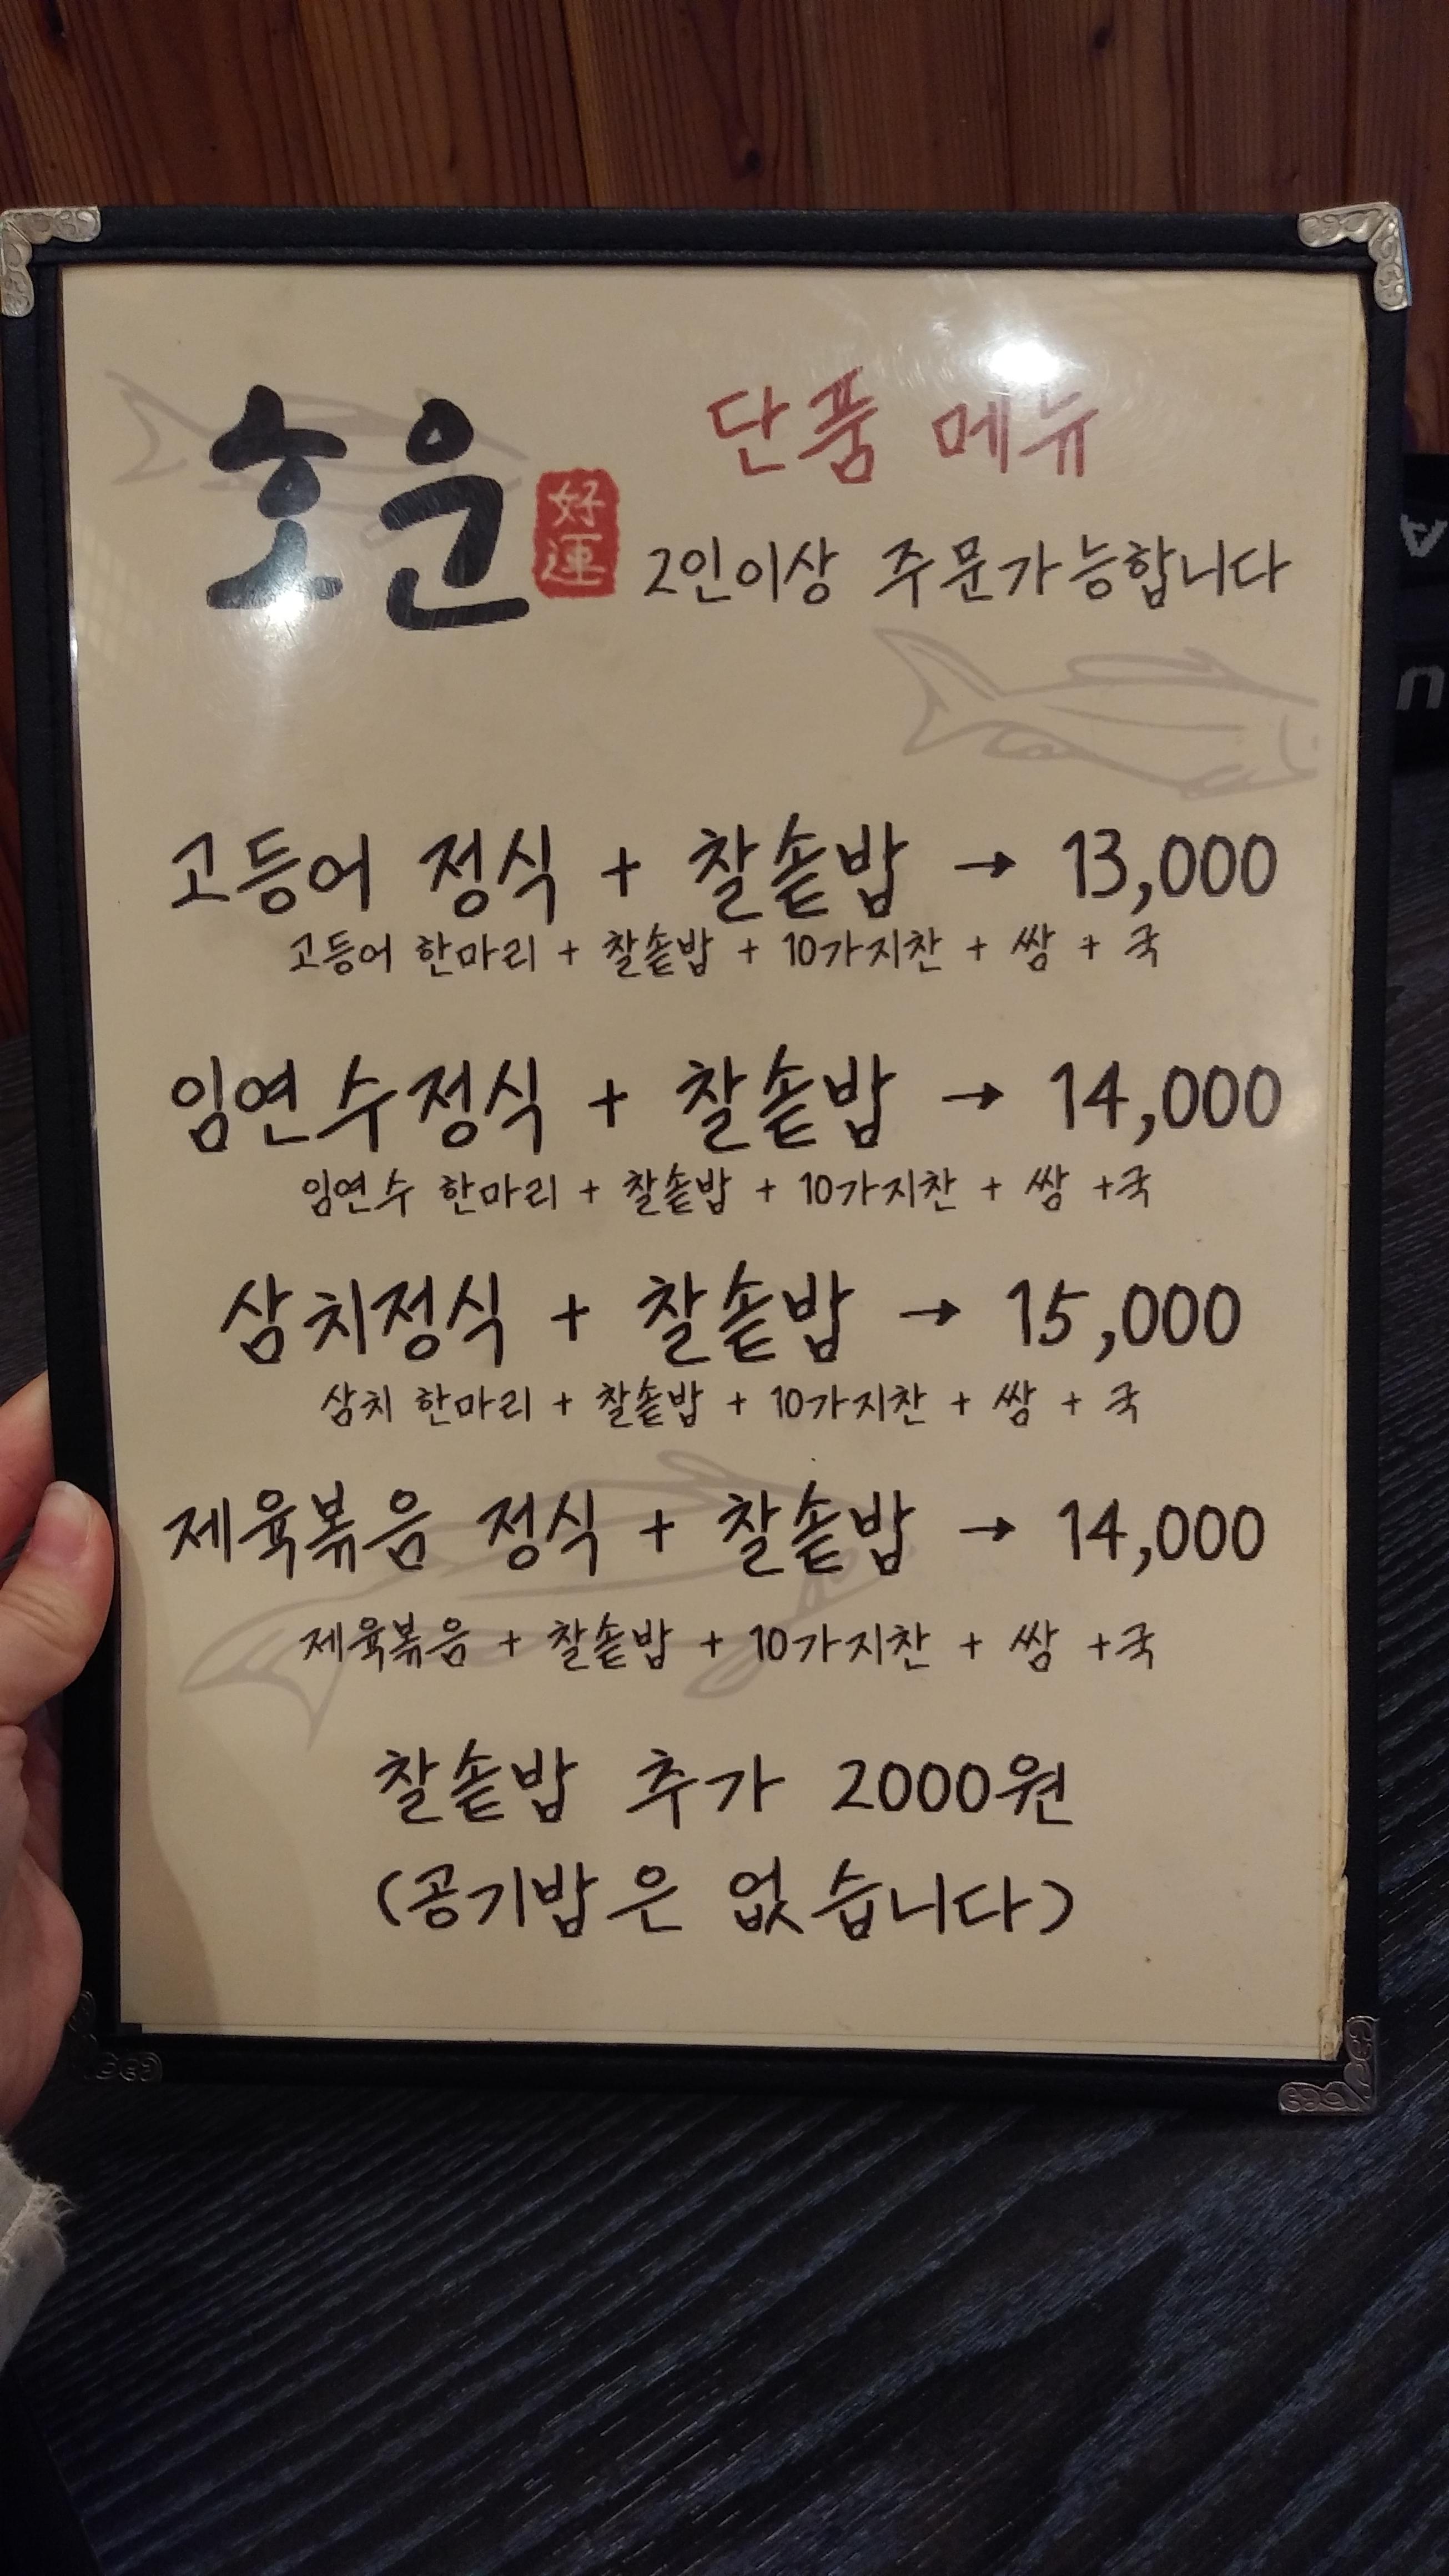 호운
好運
단품 메뉴
2인이상 주문가능합니다
고등어 정식 + 찰솥밥 → 13,000
고등어 한마리 + 찰솥밥 + 10가지찬 + 쌈 + 국
임연수정식 + 찰솥밥 → 14,000
임연수 한마리 + 찰솥밥 + 10가지찬 + 쌈 +국
삼치정식 + 찰솥밥 → 15,000
삼치 한마리 + 찰솥밥 + 10가지찬 + 쌈 + 국
제육볶음 정식 + 찰솥밥 → 14,000
제육볶음 + 찰솥밥 + 10가지찬 + 쌈 +국
찰솥밥 추가 2000원
(공기밥은 없습니다)